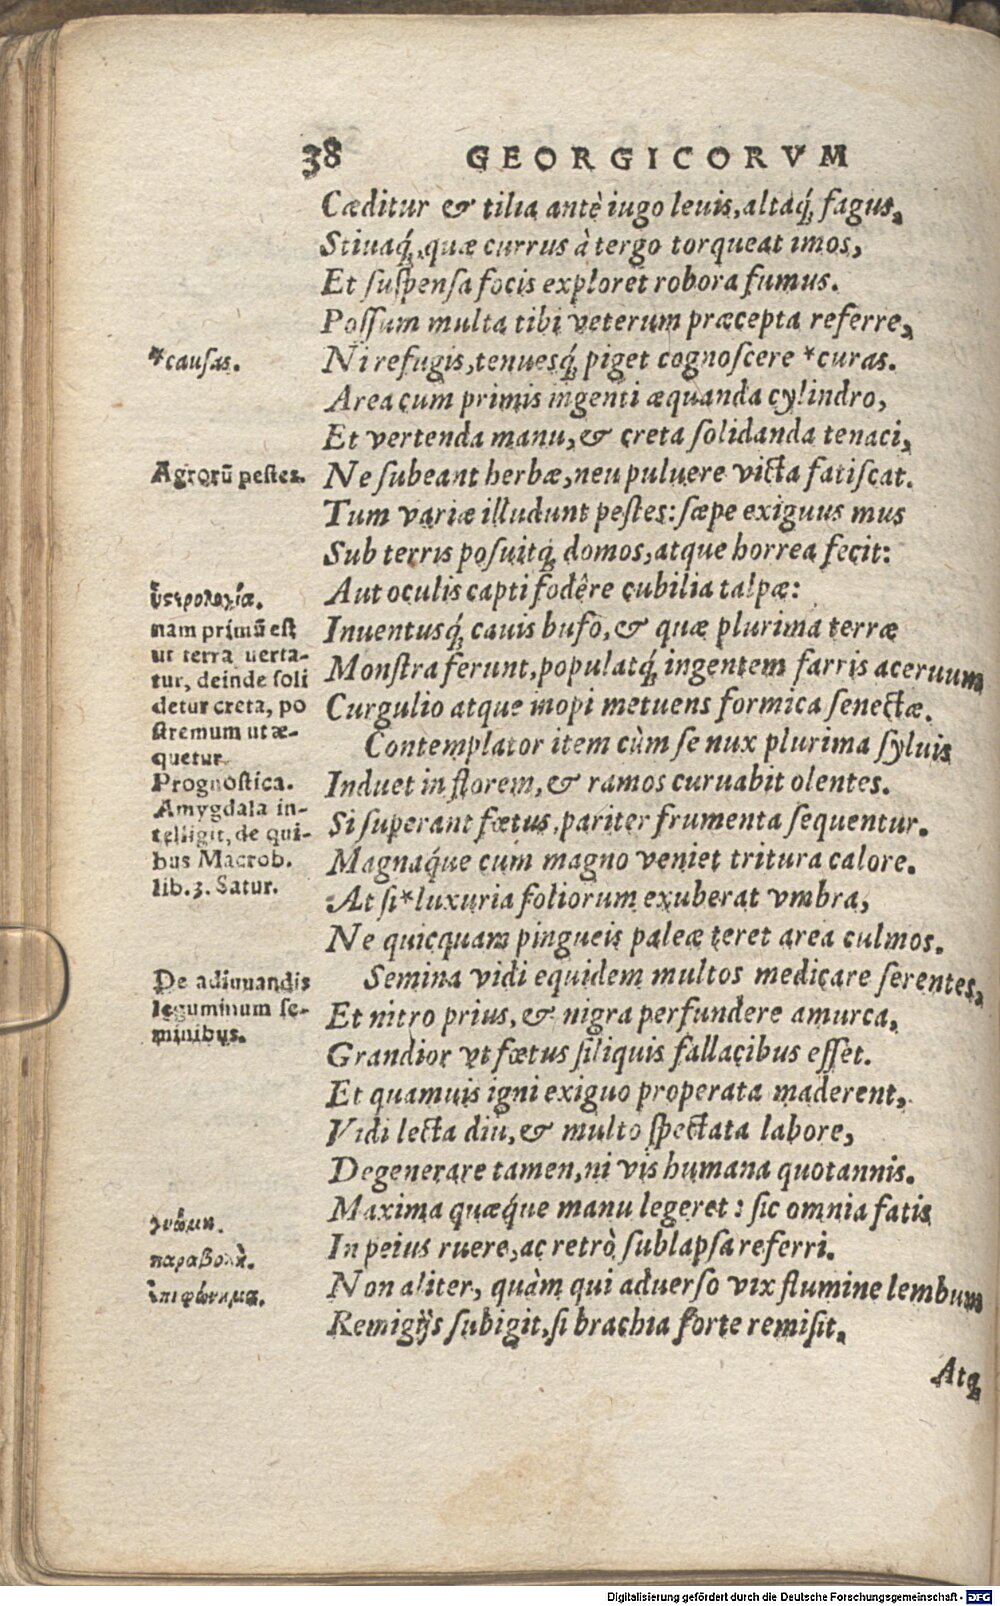 38 GEORGICORVM
Cæditur & tilia antè iugo leuis, altaq́; fagus,
Stiuaq́;, quæ currus à tergo torqueat imos,
Et suspensa focis exploret robora fumus.
Possum multa tibi veterum præcepta referre,
Ni refugis, tenuesq́; piget cognoscere *curas.
Area cum primis ingenti æquanda cylindro,
Et vertenda manu, & creta solidanda tenaci,
Ne subeant herbæ, neu puluere victa fatiscat.
Tum variæ illudunt pestes: sæpe exiguus mus
Sub terris posuitq; domos, atque horrea fecit:
Aut oculis capti fodêre cubilia talpæ:
Inuentusq́; cauis bufo, & quæ plurima terræ
Monstra ferunt, populatq́; ingentem farris aceruum
Curgulio atque inopi metuens formica senectæ.
Contemplator item cùm se nux plurima syluis
Induet in florem, & ramos curuabit olentes.
Si superant fœtus, pariter frumenta sequentur.
Magnaq́ue cum magno veniet tritura calore.
At si *luxuria foliorum exuberat vmbra,
Ne quicquam pingueis paleæ teret area culmos.
Semina vidi equidem multos medicare serentes,
Et nitro prius, & nigra perfundere amurca,
Grandior vt fœtus siliquis fallacibus esset.
Et quamuis igni exiguo properata maderent,
Vidi lecta diu, & multo spectata labore,
Degenerare tamen, ni vis humana quotannis.
Maxima quæq́ue manu legeret: sic omnia fatis
In peius ruere, ac retrò sublapsa referri.
Non aliter, quàm qui aduerso vix flumine lembum
Remigijs subigit, si brachia forte remisit,
Atq;
*causas.
Agrorũ pestes.
ὑστρολογία.
nam primũ est
ut terra uerta-
tur, deinde soli
detur creta, po
stremum ut æ-
quetur.
Prognostica.
Amygdala in-
telligit, de qui-
bus Macrob.
lib. 3. Satur.
De adiuuandis
leguminum se-
minibus.
γνώμη.
παραβολὴ.
ἐπιφώνημα.
Digitalisierung gefördert durch die Deutsche Forschungsgemeinschaft - DFG